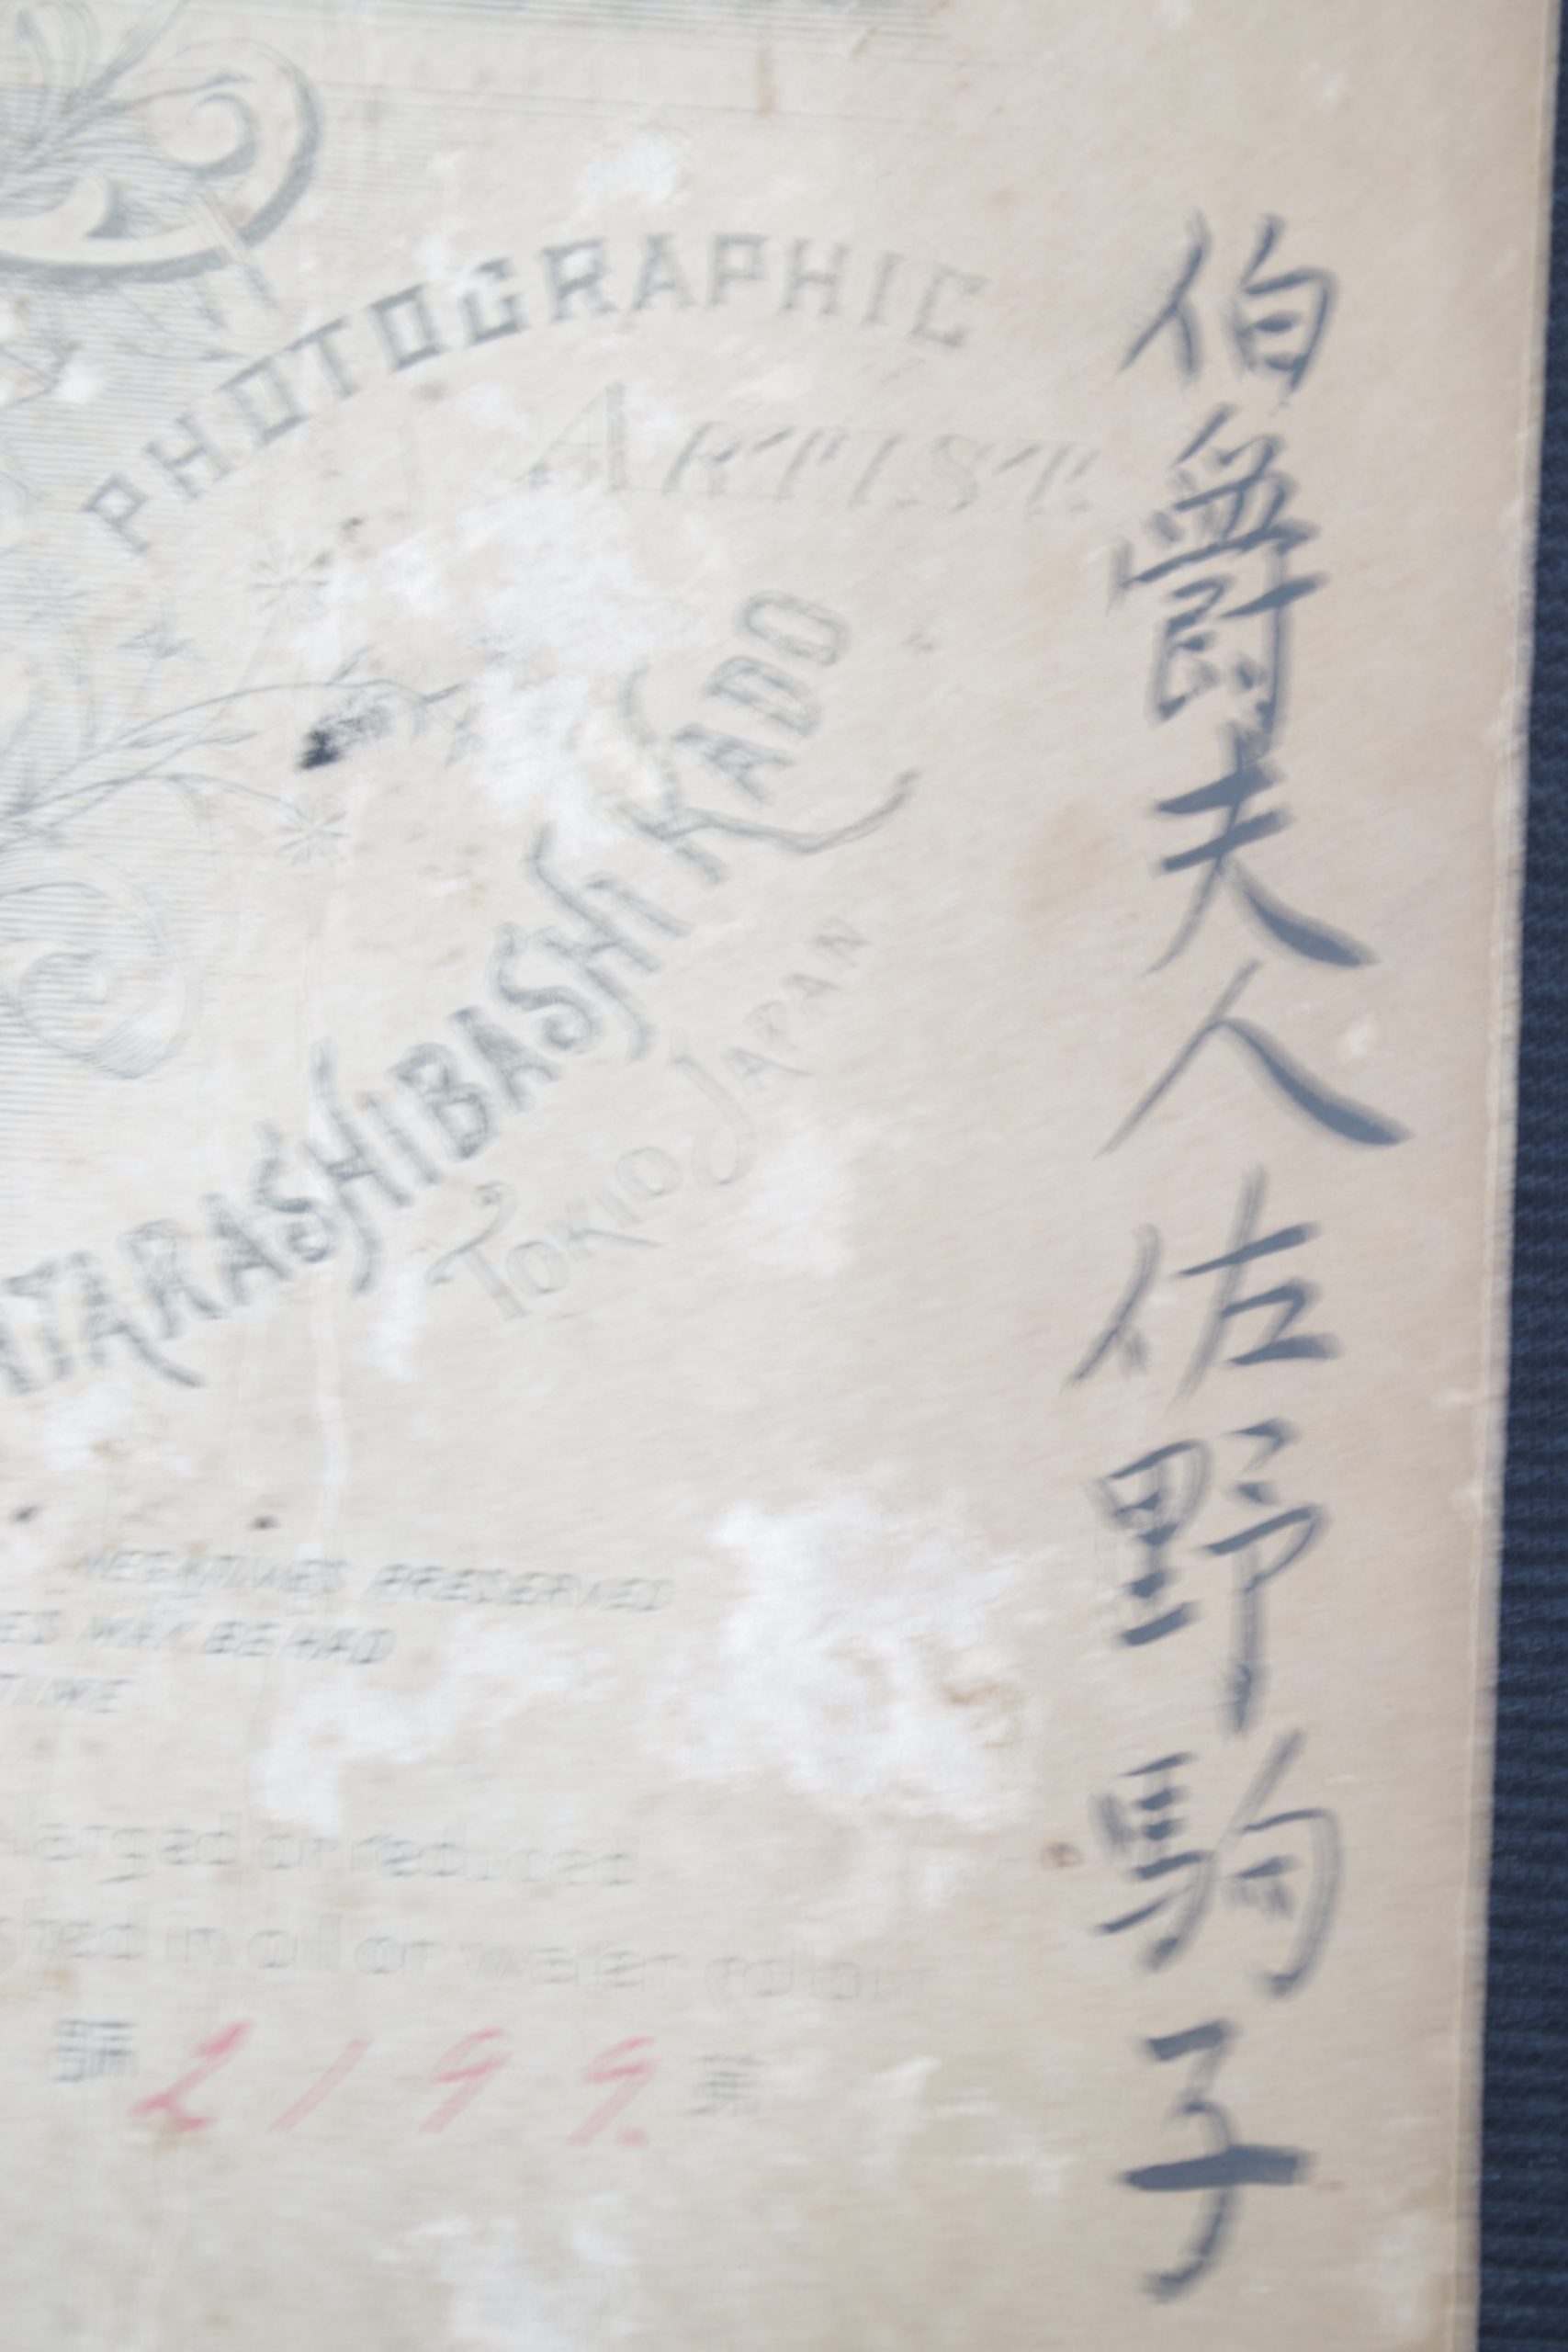 PHOTOGRAPHIC
ARTIST.
ATARASHIBASHI KADO
TOKIO JAPAN
NEGATIVES PRESERVED
MAY BE HAD
larged or reduced
in oil or water colour
號 2199. 第
伯爵夫人佐野駒子